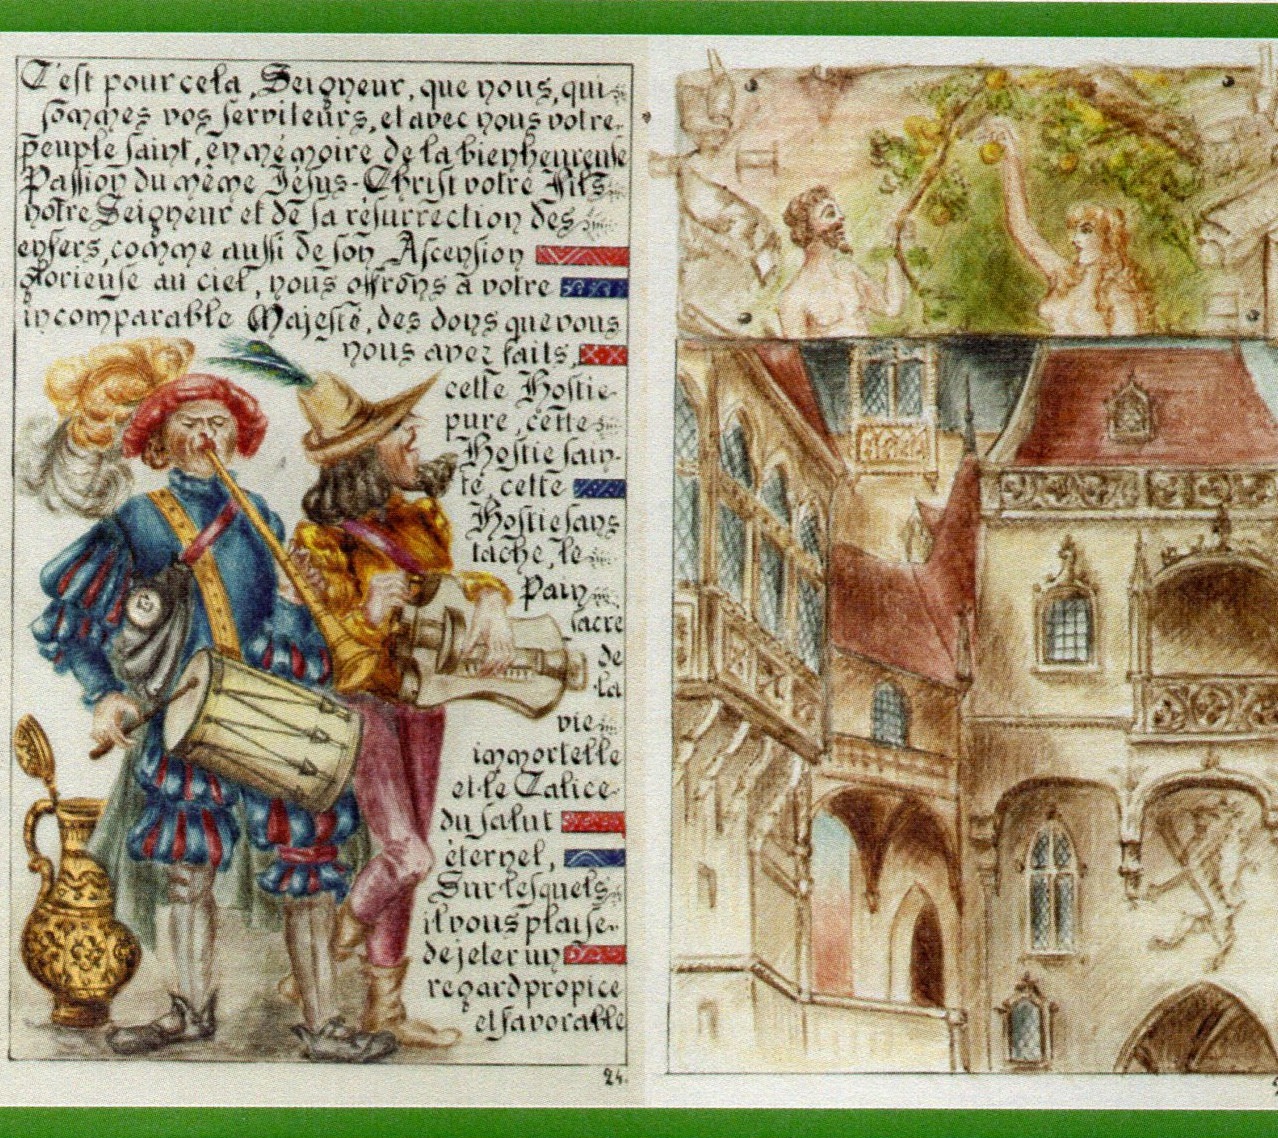 C'est pour cela, Seigneur, que nous, qui
sommes vos serviteurs, et avec nous votre
peuple saint, en mémoire de la bienheureuse
Passion du même Jésus-Christ votre Fils
notre Seigneur et de sa résurrection des
enfers, comme aussi de son Ascension
glorieuse au ciel, nous offrons à votre
incomparable Majesté, des dons que vous
nous avez faits,
cette Hostie
pure, cette
Hostie sain-
te, cette
Hostie sans
tache, le
Pain
sacré
de
la
vie
immortelle
et le Calice
du salut
éternel,
Sur lesquels
il vous plaise
de jeter un
regard propice
et favorable
24.